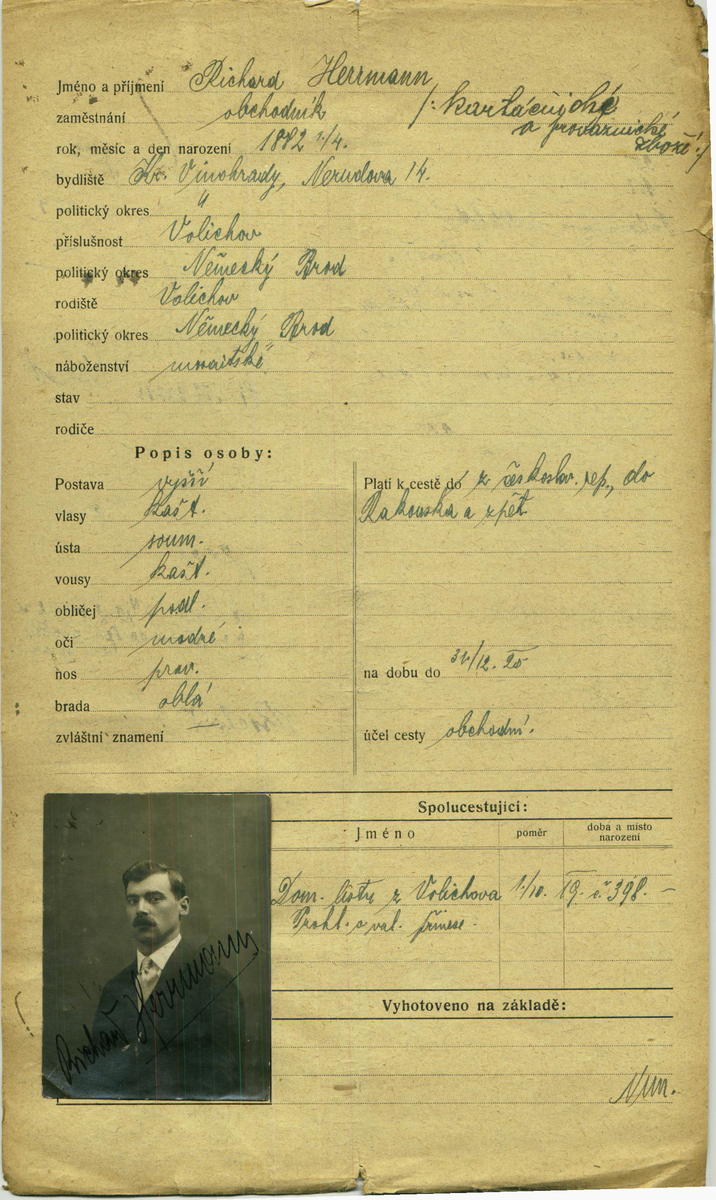 Jméno a příjmení Richard Herrmann
zaměstnání obchodník /: kartáčnické
a provaznické
zboží :/
rok, měsíc a den narození 1882 1/4.
bydliště Kr. Vinohrady, Nerudova 14.
politický okres "
příslušnost Volichov
politický okres Německý Brod
rodiště Volichov
politický okres Německý Brod
náboženství mosaitské
stav
rodiče
Popis osoby:
Postava vyšší
vlasy kašt.
ústa soum.
vousy kašt.
obličej podl.
oči modré
nos prav.
brada oblá
zvláštní znamení —
Platí k cestě do z českoslov. rep., do
Rakouska a zpět
na dobu do 31/12. 20
účel cesty obchodní.
Spolucestující:
Jméno poměr doba a místo
narození
Dom. listu z Volichova 1/10. 19. č. 398. —
Prohl. o val.
Vyhotoveno na základě:
Richard Herrmann